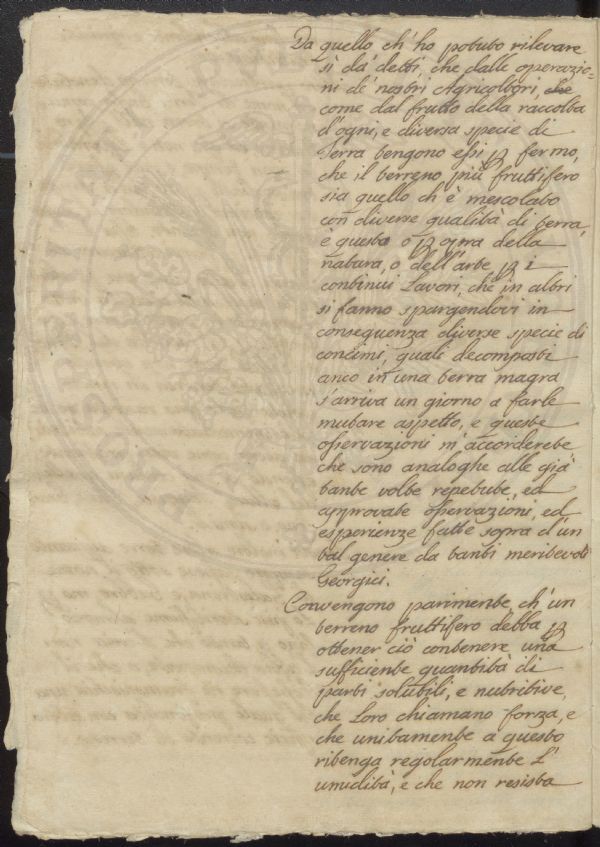 Da quello ch' ho potuto rilevare
sì da' detti, che dalle operazio=
ni de' nostri Agricoltori, che
come dal frutto della raccolta
d'ogni, e diversa specie di
Terra tengono essi p fermo,
che il terreno più fruttifero
sia quello ch' è mescolato
con diverse qualità di terra,
è questa o p opra della
natura, o dell'arte p i
continui Lavori, che in altri
si fanno spargendovi in
conseguenza diverse specie di
concimi, quali decomposti
anco in una terra magra
s'arriva un giorno a farle
mutare aspetto, e queste
osservazioni m'accorderete
che sono analoghe alle già
tante volte repetute, ed
approvate osservazioni, ed
esperienze fatte sopra d'un
tal genere da tanti meritevoli
Georgici.
Convengono parimente, ch' un
terreno fruttifero debba p
ottener ciò contenere una
sufficiente quantità di
parti solubili, e nutritive,
che Loro chiamano forza, e
che unitamente a questo
ritenga regolarmente L'
umidità, e che non resista